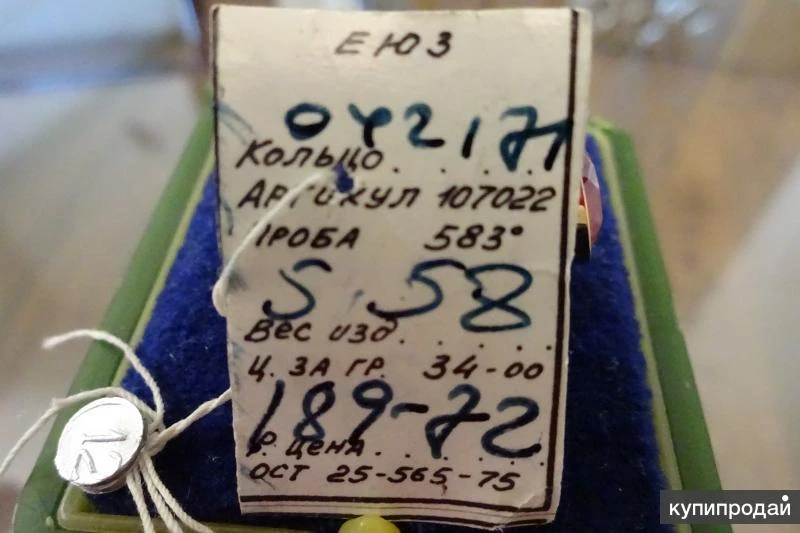 ЕЮЗ
042171
Кольцо. . . . .
Артикул 107022
ПРОБА 583°
5,58
Вес изд. . . . .
Ц. ЗА ГР. 34-00
189-72
Р. цена. . . . .
ОСТ 25-565-75
купипродай